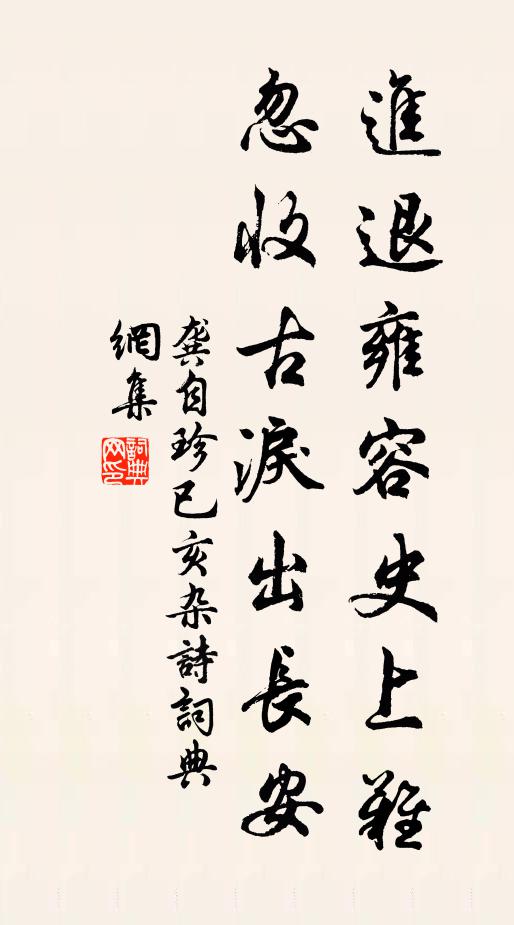 進退雍容史上難
忽收古淚出長安
龔自珍己亥杂詩詞典
網集
詞典
网印